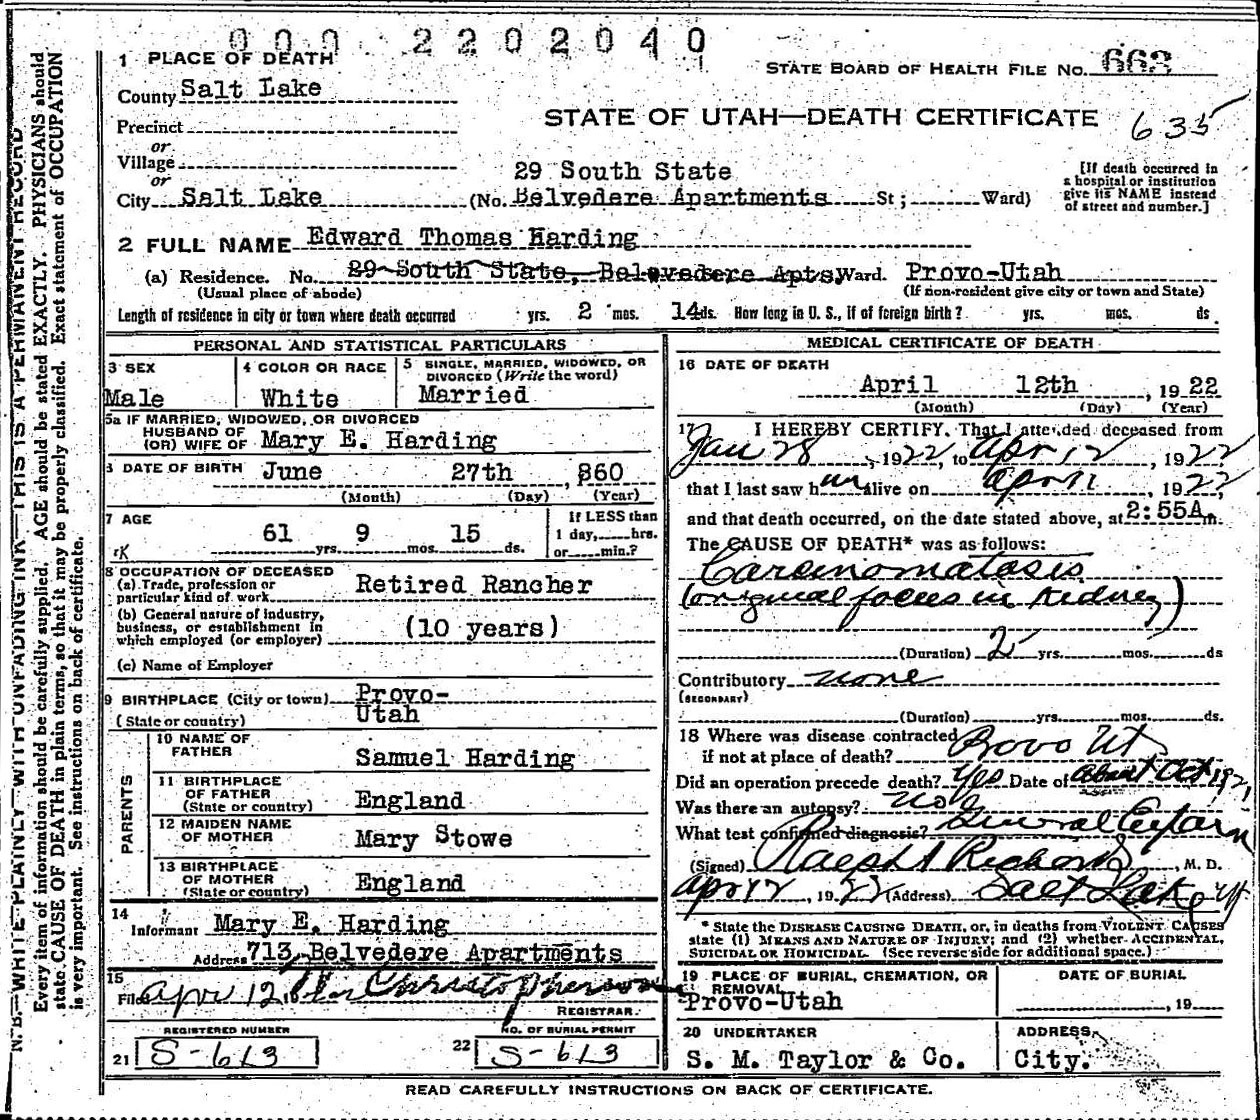 000 2202040
1 PLACE OF DEATH
STATE BOARD OF HEALTH FILE No. 663
County Salt Lake
STATE OF UTAH—DEATH CERTIFICATE 635
Precinct
or
Village
or
29 South State
City Salt Lake (No. Belvedere Apartments St; Ward)
[If death occurred in
a hospital or institution
give its NAME instead
of street and number.]
2 FULL NAME Edward Thomas Harding
(a) Residence. No. 29 South State, Belevedere Apts. Ward. Provo-Utah
(Usual place of abode) (If non-resident give city or town and State)
Length of residence in city or town where death occurred yrs. 2 mos. 14 ds. How long in U. S., if of foreign birth? yrs. mos. ds.
PERSONAL AND STATISTICAL PARTICULARS
3 SEX
Male
4 COLOR OR RACE
White
5 SINGLE, MARRIED, WIDOWED, OR
DIVORCED (Write the word)
Married
5a IF MARRIED, WIDOWED, OR DIVORCED
HUSBAND OF
(OR) WIFE OF Mary E. Harding
6 DATE OF BIRTH June 27th, 860
(Month) (Day) (Year)
7 AGE
61 yrs. 9 mos. 15 ds.
If LESS than
1 day, hrs.
or min.?
8 OCCUPATION OF DECEASED
(a) Trade, profession or
particular kind of work Retired Rancher
(b) General nature of industry,
business, or establishment in
which employed (or employer) (10 years)
(c) Name of Employer
9 BIRTHPLACE (City or town) Provo-
(State or country) Utah
PARENTS
10 NAME OF
FATHER Samuel Harding
11 BIRTHPLACE
OF FATHER
(State or country) England
12 MAIDEN NAME
OF MOTHER Mary Stowe
13 BIRTHPLACE
OF MOTHER
(State or country) England
14
Informant Mary E. Harding
Address 713, Belvedere Apartments
15
Filed Apr 12 Christopherson
REGISTRAR.
REGISTERED NUMBER
21 S-613
NO. OF BURIAL PERMIT
22 S-613
MEDICAL CERTIFICATE OF DEATH
16 DATE OF DEATH
April 12th, 1922
(Month) (Day) (Year)
17 I HEREBY CERTIFY, That I attended deceased from
Jan 28, 1922, to Apr 12, 1922
that I last saw him alive on Apr 11, 1922,
and that death occurred, on the date stated above, at 2:55A.m.
The CAUSE OF DEATH* was as follows:
Carcinomatosis
(original focus in Kidney)
(Duration) 2 yrs. mos. ds
Contributory none
(SECONDARY)
(Duration) yrs. mos. ds.
18 Where was disease contracted
if not at place of death? Provo Ut
Did an operation precede death? Yes Date of about Oct 1921
Was there an autopsy? no
What test confirmed diagnosis? General
(Signed) Ralph Richards, M. D.
Apr 12, 1922 (Address) Salt Lake Ut
* State the DISEASE CAUSING DEATH, or, in deaths from VIOLENT CAUSES
state (1) MEANS AND NATURE OF INJURY; and (2) whether ACCIDENTAL,
SUICIDAL OR HOMICIDAL. (See reverse side for additional space.)
19 PLACE OF BURIAL, CREMATION, OR
REMOVAL
Provo-Utah
DATE OF BURIAL
, 19
20 UNDERTAKER
S. M. Taylor & Co.
ADDRESS
City.
READ CAREFULLY INSTRUCTIONS ON BACK OF CERTIFICATE.
N. B.—WRITE PLAINLY WITH UNFADING INK—THIS IS A PERMANENT RECORD
Every item of information should be carefully supplied. AGE should be stated EXACTLY. PHYSICIANS should
state CAUSE OF DEATH in plain terms, so that it may be properly classified. Exact statement of OCCUPATION
is very important. See instructions on back of certificate.